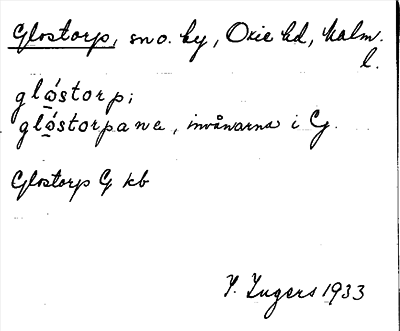 Glostorp, sno. by, Oxie hd, Malm.
l.
glǫ́storp;
glǫ́storpana, invånarna i G.
Glostorp G kb
Ingers 1933